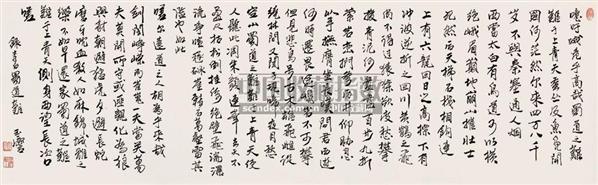 噫吁嚱危乎高哉蜀道之難
難于上青天蚕丛及魚鳧開
國何茫然尔來四万八千
岁不與秦塞通人烟
西當太白有鳥道可以橫
絕峨眉巔地崩山摧壯士
死然后天梯石棧相鉤連
上有六龍回日之高標下有
冲波逆折之回川黃鶴之飛
尚不得過猿猱欲度愁攀
援青泥何盤盤百步九折
縈岩巒捫參歷井仰脅息
以手撫膺坐長嘆問君西遊
何時還畏途巉岩不可攀
但見悲鳥號古木雄飛雌從
繞林間又聞子規啼夜月愁
空山蜀道之難難于上青天使
人聽此凋朱顏連峰去天不
盈尺枯松倒挂倚絕壁飛湍瀑
流爭喧豗砯崖轉石萬壑雷其
險也如此
嗟尔遠道之人胡為乎來哉
劍閣崢嶸而崔嵬一夫當关萬
夫莫開所守或匪親化為狼
與豺朝避猛虎夕避長蛇
磨牙吮血殺人如麻錦城雖云
樂不如早還家蜀道之難
難于上青天側身西望長咨
嗟
錄李白蜀道難